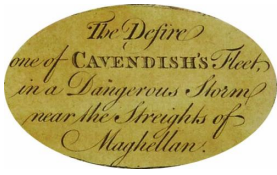 The Desire
one of CAVENDISH'S Fleet,
in a Dangerous Storm
near the Streights of
Maghellan.